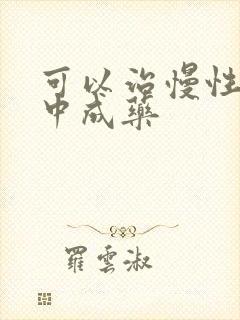 可以治慢性
中成藥
羅雲淑